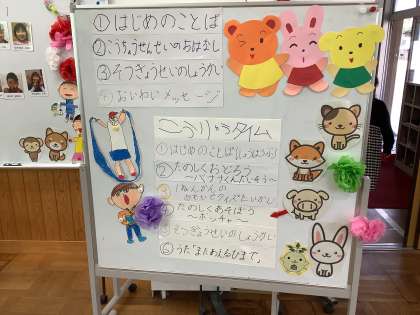 ①はじめのことば
②こうちょうせんせいのおはなし
③そつぎょうせいのしょうかい
④おいわいメッセージ
こうりゅうタイム
①はじめのことば
②たのしくおどろう
③1ねんかんの
④たのしくあそぼう
～ボッチャ～
⑤そつぎょうせいのしょうかい
⑥うた「またあえるひまで」